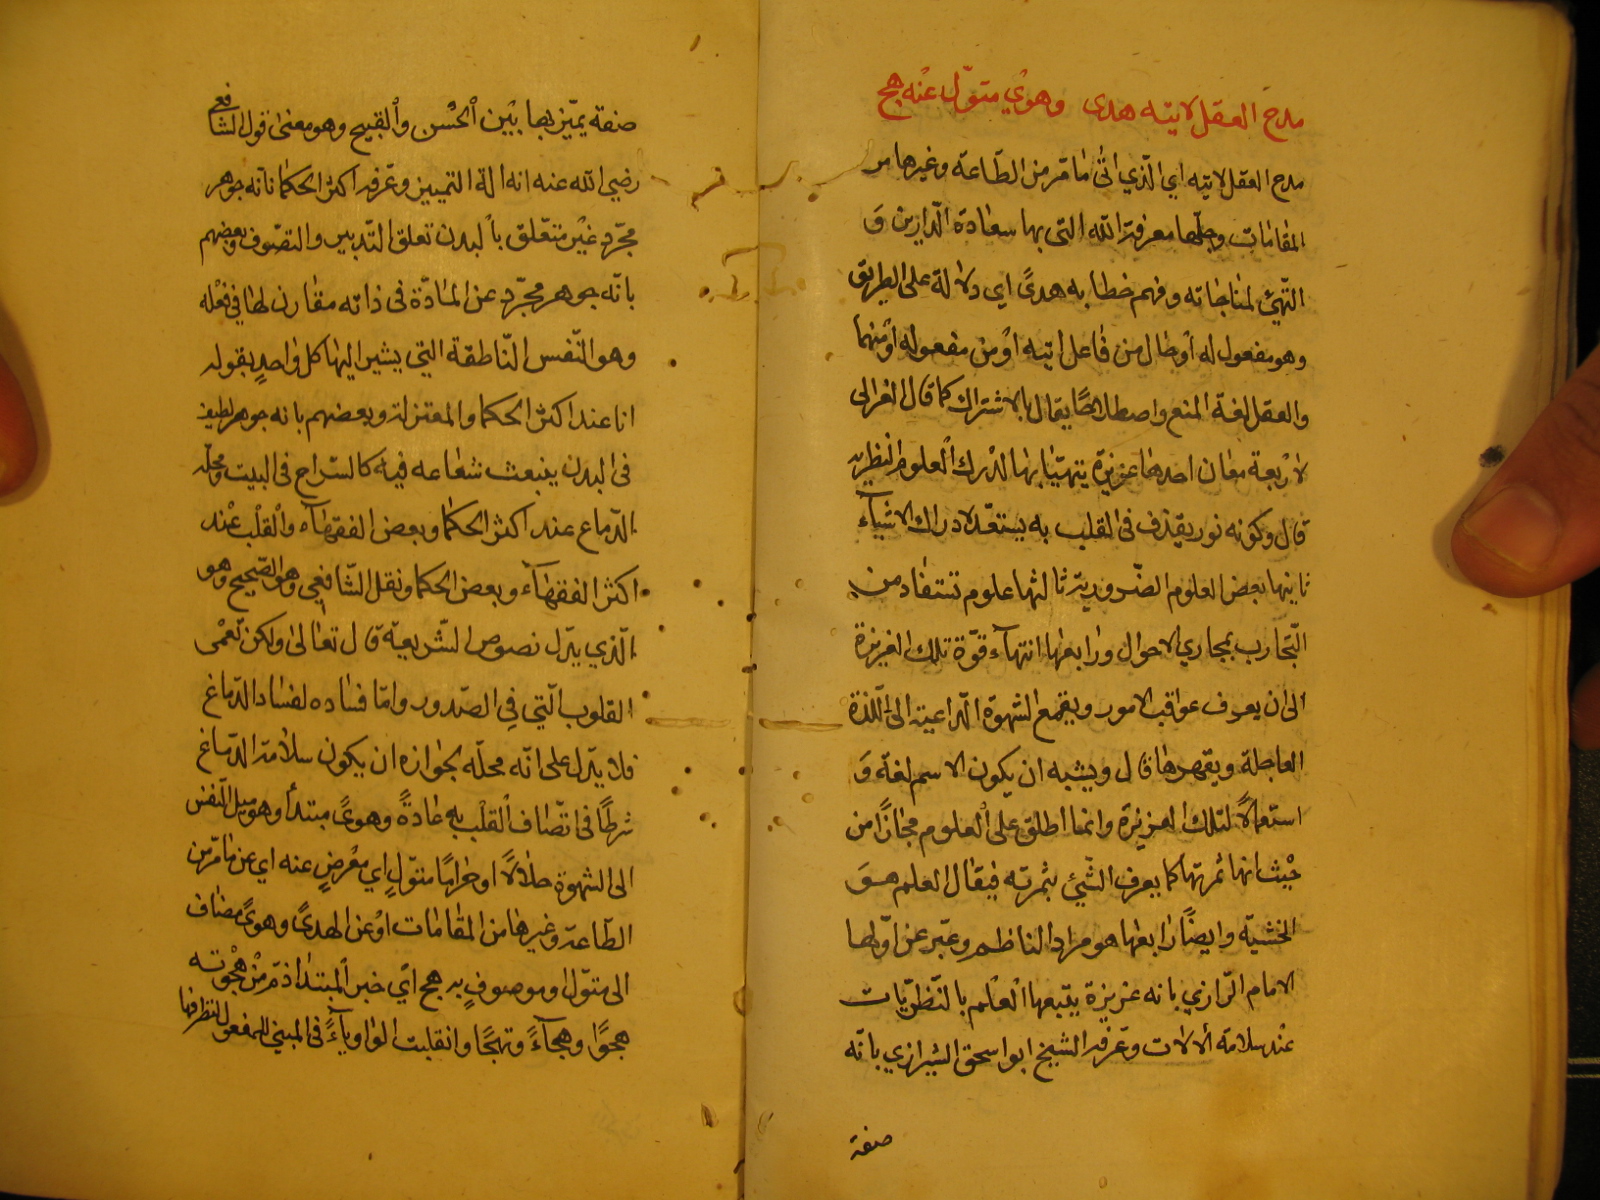 مدح العقل لاتيه هدى وهوي متوّل عنه هج
مدح العقل لاتيه اي الّذي اتٰى مٰا مّر من الطّاعة وغيرها من
المقٰامٰات وجلّها معرفة اللّه التي بها سعٰادة الدّارين وَ
التّهيّئ لمنٰاجٰاته وفهم خطابه هدىً اي دلالة على الطريق
وهو مفعول له اوْ حٰال من فٰاعل اتيه اوْ من مفعوله اوْ منهما
والعقل لغة المنع واصطلاحًا يقال بالاشتراك كما قال الغزالى
لاربعة معٰان احدهٰا غريزة يتهئّا بهٰا لدرك العلوم النظرية
قال وكونه نور يقذف فى القلب به يستعدّ لادراك الاشيآء
ثانيها بعض العلوم الضّرورية ثالثها علوم تستفٰاد من
التّجٰارب بمجاري الاحوال ورٰابعهٰا انتهآء قوّة تلك الغريزة
الى ان يعرف عواقب الامور ويقمع الشهوة الدّاعية الى اللّذة
العاجلة ويقهرهٰا قال ويشبه ان يكون الاسم لغة وَ
استعمٰالاً لتلك الغريزة وانما اطلق على العلوم مجٰازًا من
حيْث انها ثمرتها كما يعرف الشّئ بثمرته فيقال العلم هو
الخشيّة وايضًا رٰابعهٰا هو مراد الناظم وعبّر عن اوّلهٰا
الامام الرّازي بانه غريزة يتبعها العلم بالنّظريّات
عنْد سلامة الالات وعرّفه الشيخ ابو اسحق الشيرازي بانّه
صفة
صفة يميّز بها بيْن الْحسْن والْقبيح وهو معنىٰ قول الشافعي
رضي اللّه عنه انه الة التمييز وعرّفه اكثر الحكمٰا بٔانه جوهر
مجّرد غيْر متعّلق بالْبدن تعلق التّدبير والتصّرف وبعضهم
بانّه جوهر مجّرد عن المٰادّة فى ذاته مقٰارن لهٰا في فعْله
وهو النّفس النّاطقة التي يشير اليهٰا كل وٰاحدٍ بقوله
انا عند اكثر الحكما والمعتزلة وبعضهم بانه جوهر لطيف
فى البدن ينبعث شعٰاعه فيه كالسّراج فى البيت ومحلّه
الدّماغ عند اكثر الحكمٰا وبعض الفقهٰآء والْقلْب عنْد
اكثر الفقهٰآء وبعض الحكما ونقل الشّافعي وهو الصّحيح وهو
الّذي يدّل نصوص الشّريعة قال تعٰالىٰ ولكن تعْمى
القلوب الّتي فِي الصّدور وامّا فسٰاده لفسٰاد الدّماغ
فلا يدّل على انّه محلّه لجٰوازه ان يكون سلامة الدّماغ
شرطًا فى اتّصٰاف الْقلْب به عٰادةً وهوىً مبتدأ وهو ميل النّفس
الى الشهوة حلالاً او حرٰامًا متوّلٍ اي معْرضٍ عنه اي عن مٰا مّر من
الطّاعة وغيرهٰا من المقٰامٰات اوْ عن الهدىً وهوىً مضاف
الى متوّل وموصوفٍ به هج ايّ خبر الْمبتدٰا ذمّ منْ هجْوته
هجوًا وهجآءً وتهجًّا وانقلبت الوٰاو يآءً فى المبني للمفعول لتطرفها